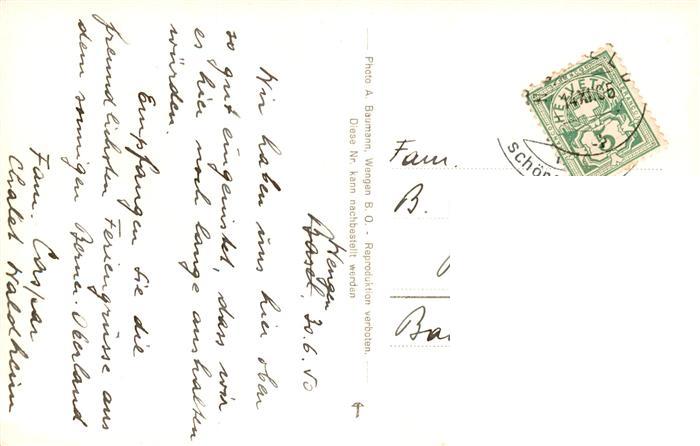 Wengen
Basel, 30.6.50
Wir haben uns hier oben
so gut eingenistet, dass wir
es hier noch lange aushalten
würden.
Empfangen Sie die
freundlichsten Feriengrüsse aus
dem sonnigen Berner-Oberland
Fam. Caspar
Chalet Waldheim
Photo A. Baumann, Wengen B. O. - Reproduktion verboten.
Diese Nr. kann nachbestellt werden
HELVETIA
5
Fam.
B.